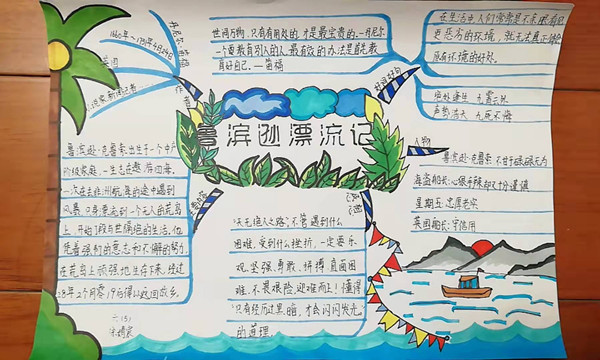 鲁滨逊漂流记
作者
丹尼尔·笛福
1660年～1731年4月24日
英国
小说家、新闻记者
世间万物,只有有用处的,才是最宝贵的。—丹尼尔
一个要教育别人的人,最有效的办法是首先教
育好自己。—笛福
好词好句
在生活中人们常常是不亲眼看见
更恶劣的环境,就无法真正体会
原有环境的好处。
绝处逢生 九霄云外
声势浩大 九死不悔
人物
鲁滨逊·克鲁索:不甘于碌碌无为
海盗船长:心狠手辣却又十分谨慎
星期五:忠厚老实
英国船长:守信用
主要内容
鲁滨逊·克鲁索出生于一个中产
阶级家庭,一生志在遨游四海。
一次在去非洲航海的途中遇到
风暴,只身漂流到一个无人的荒岛
上,开始了段与世隔绝的生活。他
凭着强韧的意志和不懈的努力,
在荒岛上顽强地生存下来,经过
28年2个月零19后得以返回故乡。
感想
“天无绝人之路”,不管遇到什么
困难,受到什么挫折,一定要乐
观、坚强、勇敢、拼搏,直面困
难,不畏艰险,迎难而上!懂得
“只有经历过黑暗,才会闪闪发光”
的道理。
六(5)